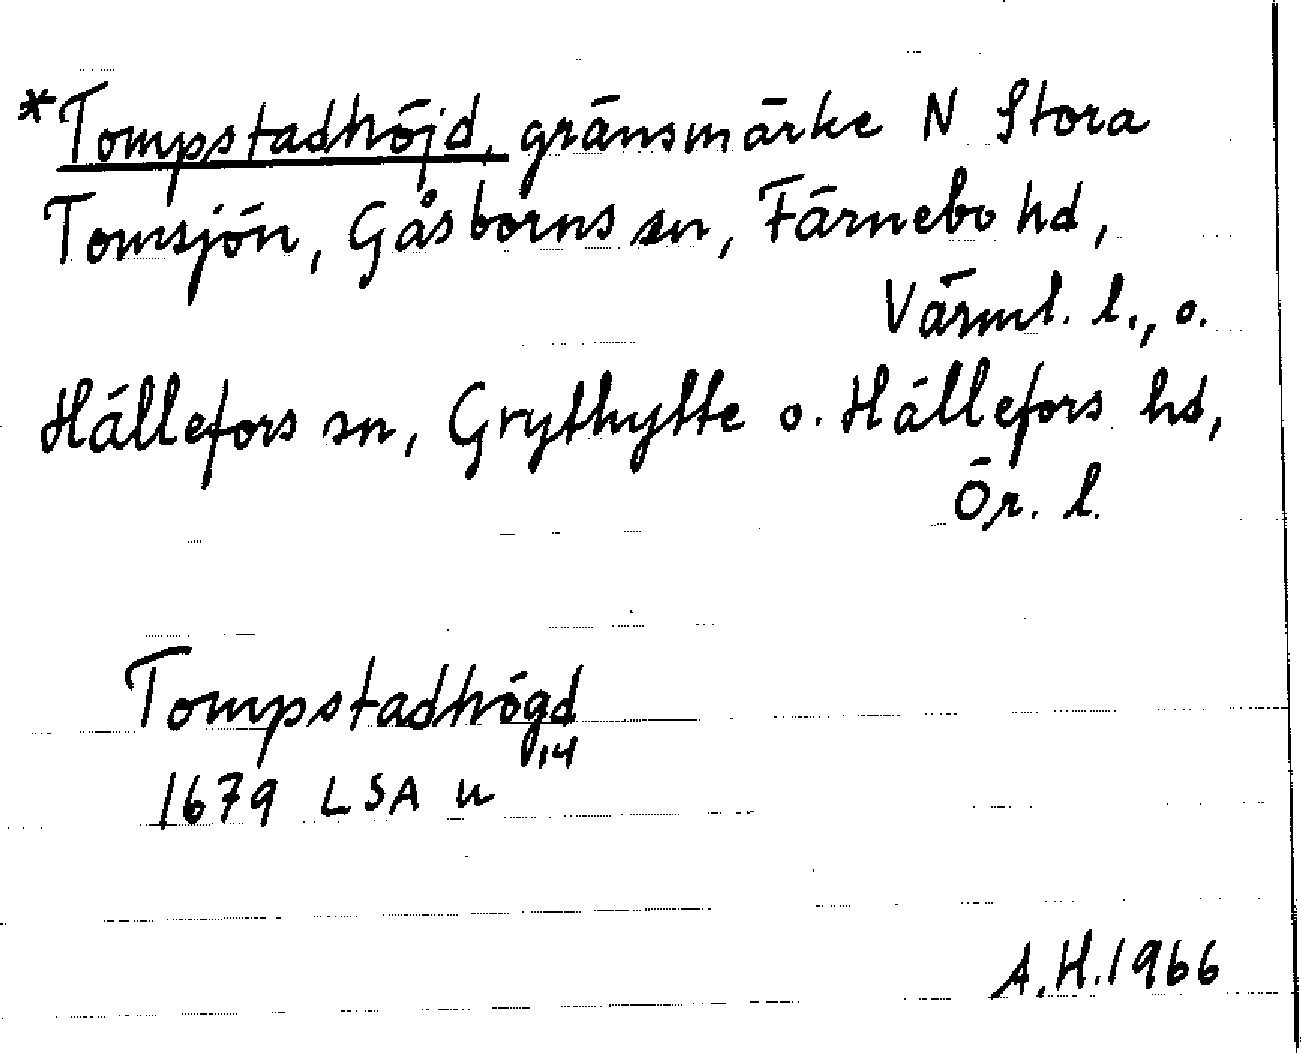 *Tompstadhöjd, gränsmärke N Stora
Tomsjön, Gåsborns sn, Färnebo hd,
Värml. l., o.
Hällefors sn, Grythytte o. Hällefors hd,
Ör. l.
Tompstadhögd
1679 LSA u 14
A.H. 1966